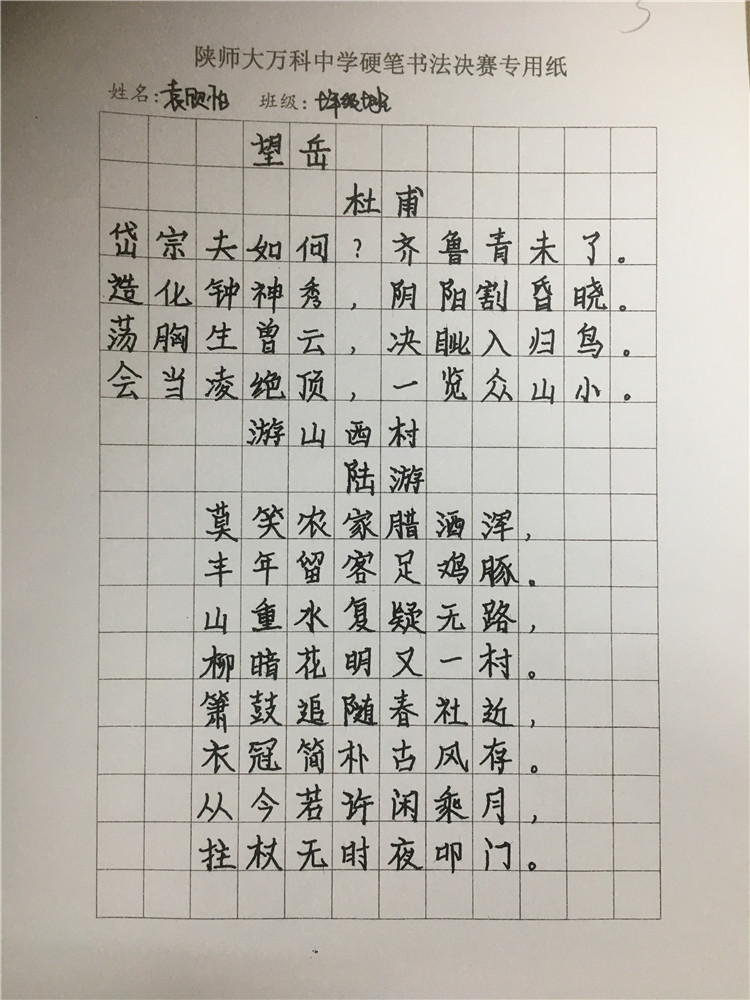 陕师大万科中学硬笔书法决赛专用纸
姓名：袁 怡 班级：七年级 班
望岳
杜甫
岱宗夫如何？齐鲁青未了。
造化钟神秀，阴阳割昏晓。
荡胸生曾云，决眦入归鸟。
会当凌绝顶，一览众山小。
游山西村
陆游
莫笑农家腊酒浑，
丰年留客足鸡豚。
山重水复疑无路，
柳暗花明又一村。
箫鼓追随春社近，
衣冠简朴古风存。
从今若许闲乘月，
拄杖无时夜叩门。